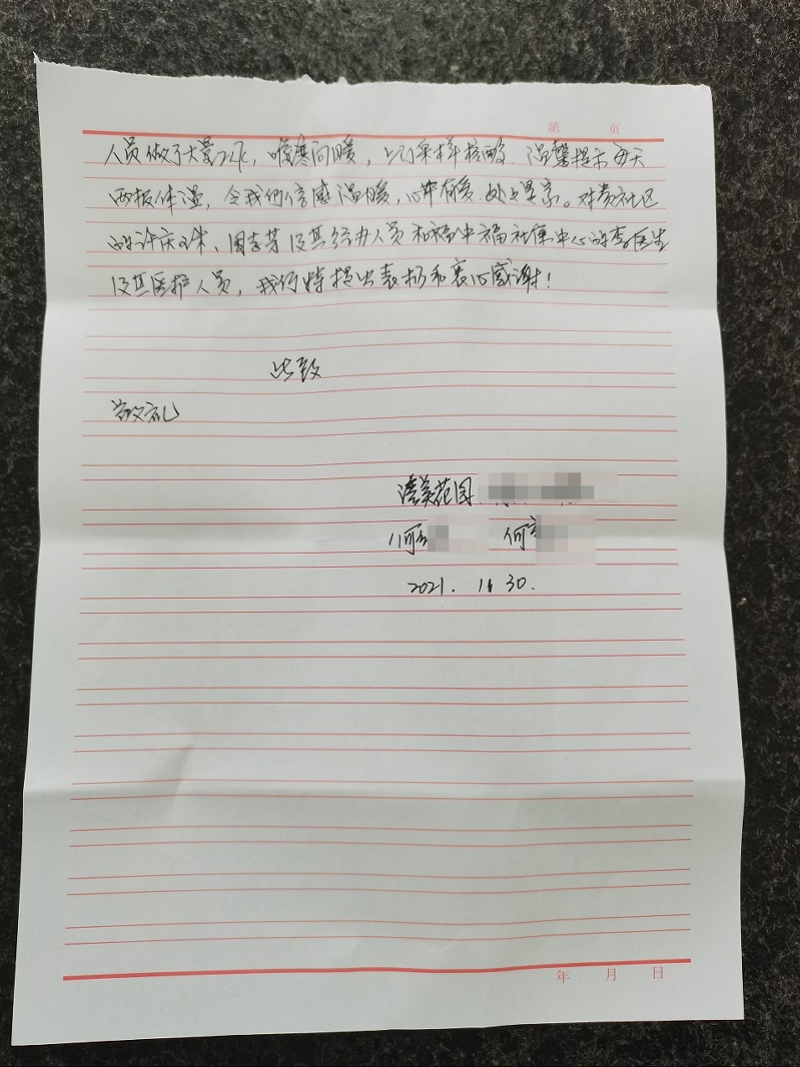 第 页
人员做了大量工作，嘘寒问暖，上门采样核酸 温馨提示每天
两报体温，令我们倍感温暖，心中有爱 处处是景。对贵社区
的许庆 、周 芳及其经办人员和福中福社康中心的李医生
及其医护人员，我们特提出表扬和衷心感谢！
此致
敬礼
美花园
何 何
2021. 11 30.
年 月 日